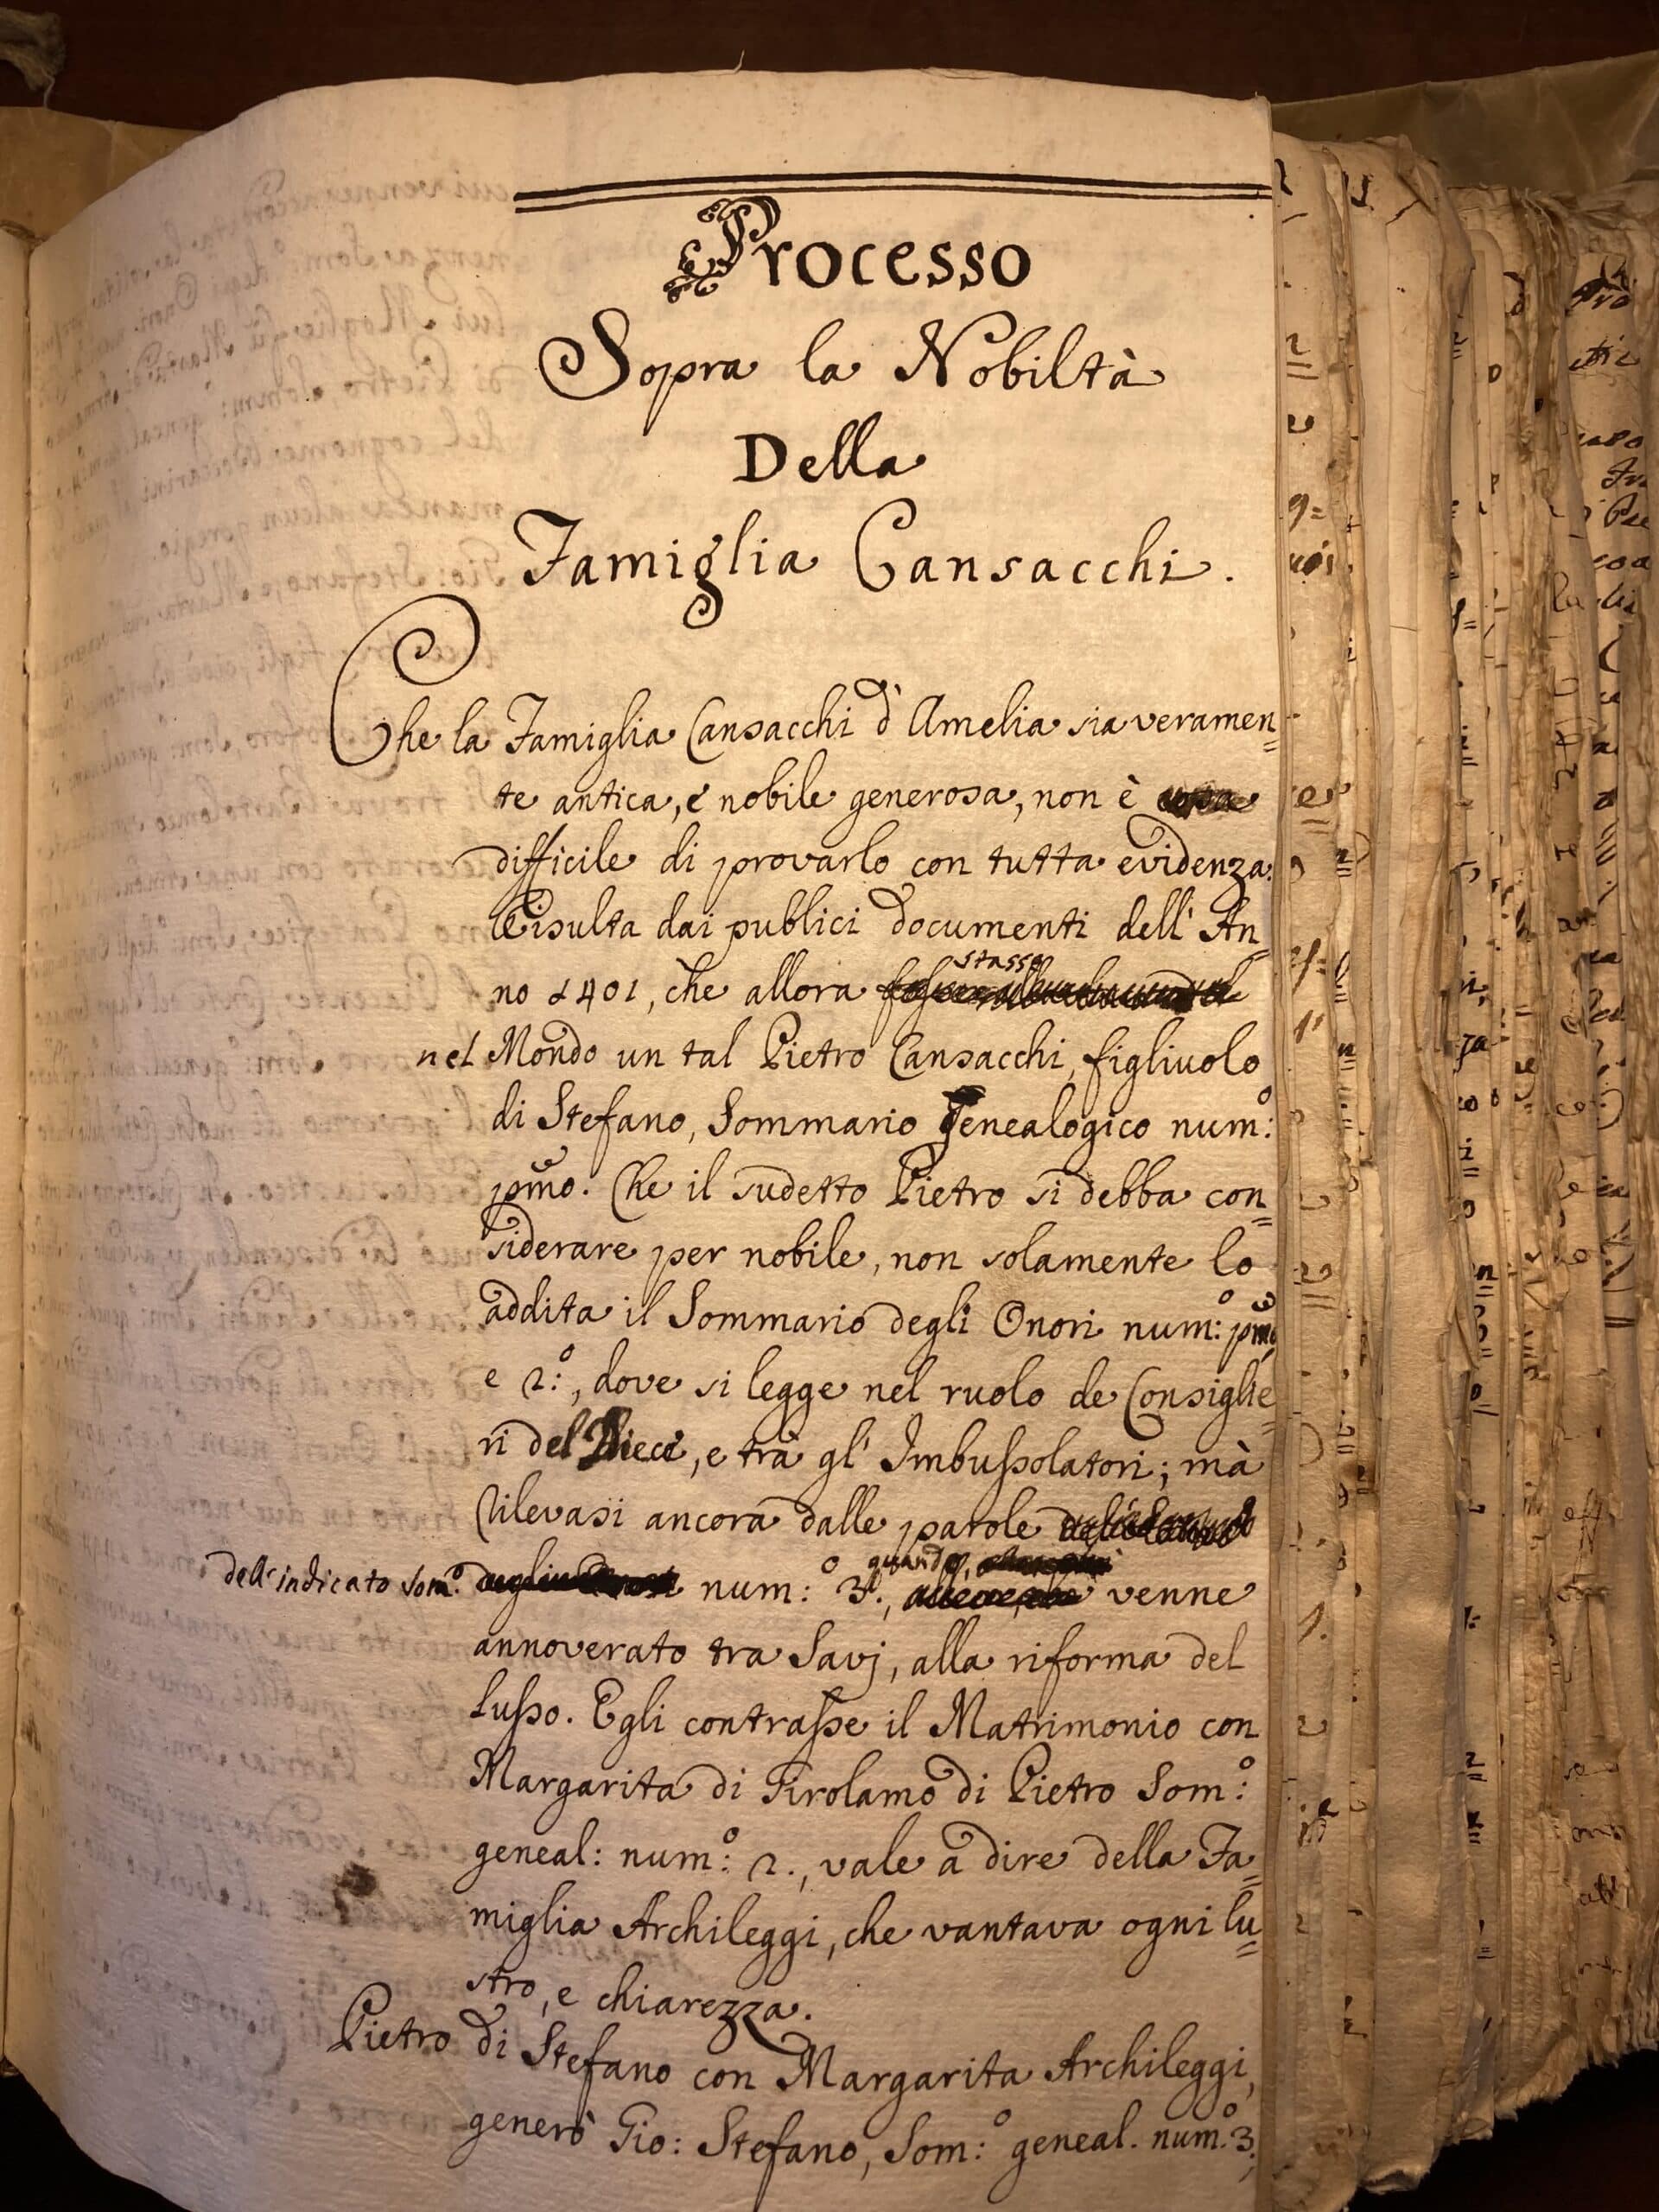 Processo
Sopra la Nobiltà
Della
Famiglia Cansacchi.
Che la Famiglia Cansacchi d'Amelia sia veramen=
te antica, e nobile generosa, non è
difficile di provarlo con tutta evidenza.
Risulta dai publici documenti dell'An=
stasse
no 1401, che allora
nel Mondo un tal Pietro Cansacchi, figliuolo
di Stefano, Sommario Genealogico num:º
pmo. Che il sudetto Pietro si debba con=
siderare per nobile, non solamente lo
addita il Sommario degli Onori num:º pmo
e 2:º, dove si legge nel ruolo de Consiglie=
ri del Dieci, e trà gl'Imbussolatori; mà
rilevasi ancora dalle parole
quando,
dell'indicato Somº. num:º 3., venne
annoverato tra Savj, alla riforma del
Lusso. Egli contrasse il Matrimonio con
Margarita di Girolamo di Pietro Som:º
geneal: num:º 2., vale a dire della Fa=
miglia Archileggi, che vantava ogni lu=
stro, e chiarezza.
Pietro di Stefano con Margarita Archileggi,
generò Gio: Stefano, Som:º geneal. num:º 3,